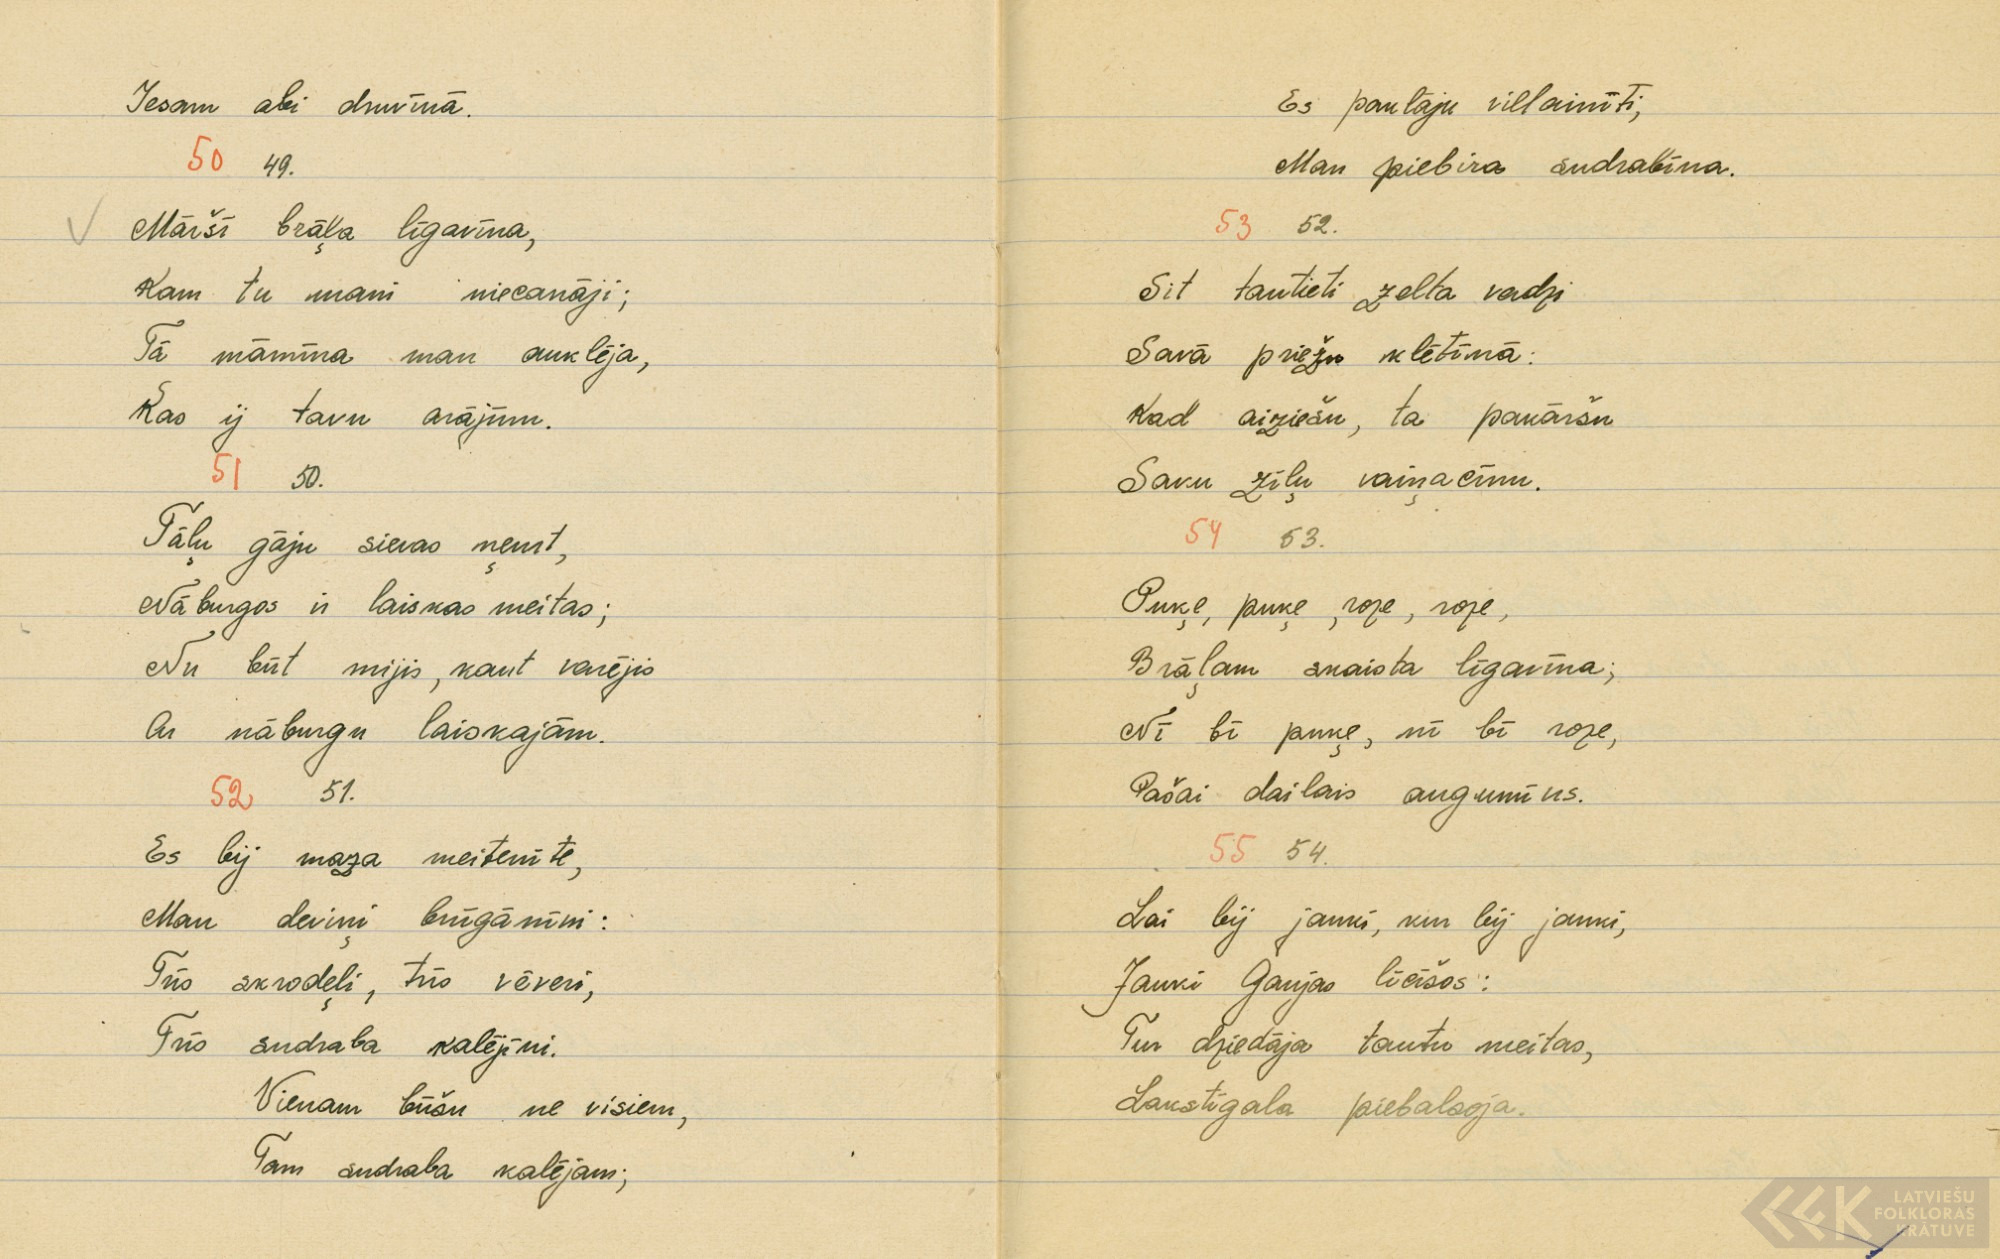 Iesam abi druvīnā.
50 49.
Mārší brāļa līgavīna,
Kam tu mani niecanāji;
Tā māmīna man auklēja,
Kas ij tavu arājīnu.
51 50.
Tāļu gāju sievas ņemt,
Nāburgos ir laiskas meitas;
Nu būt mijis, kaut varējis
Ar nāburgu laiskajām.
52 51.
Es bij maza meitenīte,
Man deviņi brūgānīni:
Trīs skrodeļi, trīs vēveri,
Trīs sudraba kalējīni.
Vienam būšu ne visiem,
Tam sudraba kalējam;
Es paulāju villainīti,
Man piebira sudrabīna.
53 52.
Sit tautieti zelta vadzi
Savā priežu klētīnā:
Kad aiziešu, ta pakāršu
Savu zīļu vaiņacīnu.
54 53.
Puķe, puķe, roze, roze,
Brāļam skaista līgavīna;
Nī bī puķe, nī bī roze,
Pašai dailais augumīns.
55 54.
Lai bij jauki, kur bij jauki,
Jauki Gaujas līcīšos:
Tur dziedāja tautu meitas,
Lakstīgala piebalsoja.
LATVIEŠU
FOLKLORAS
KRĀTUVE